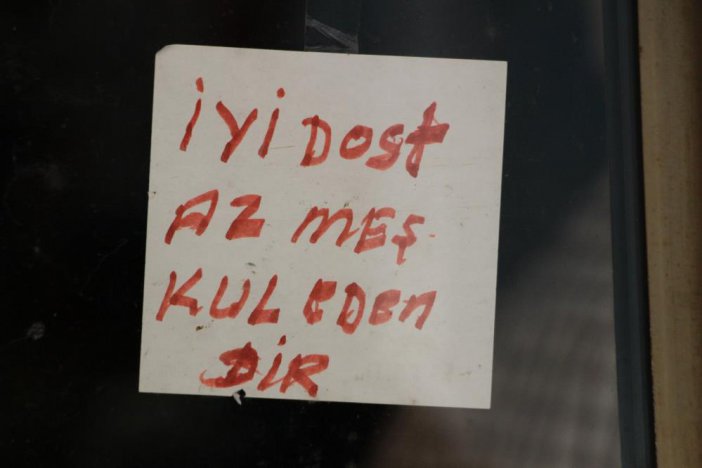 İYİ DOST
AZ MEŞ
KUL EDEN
DİR